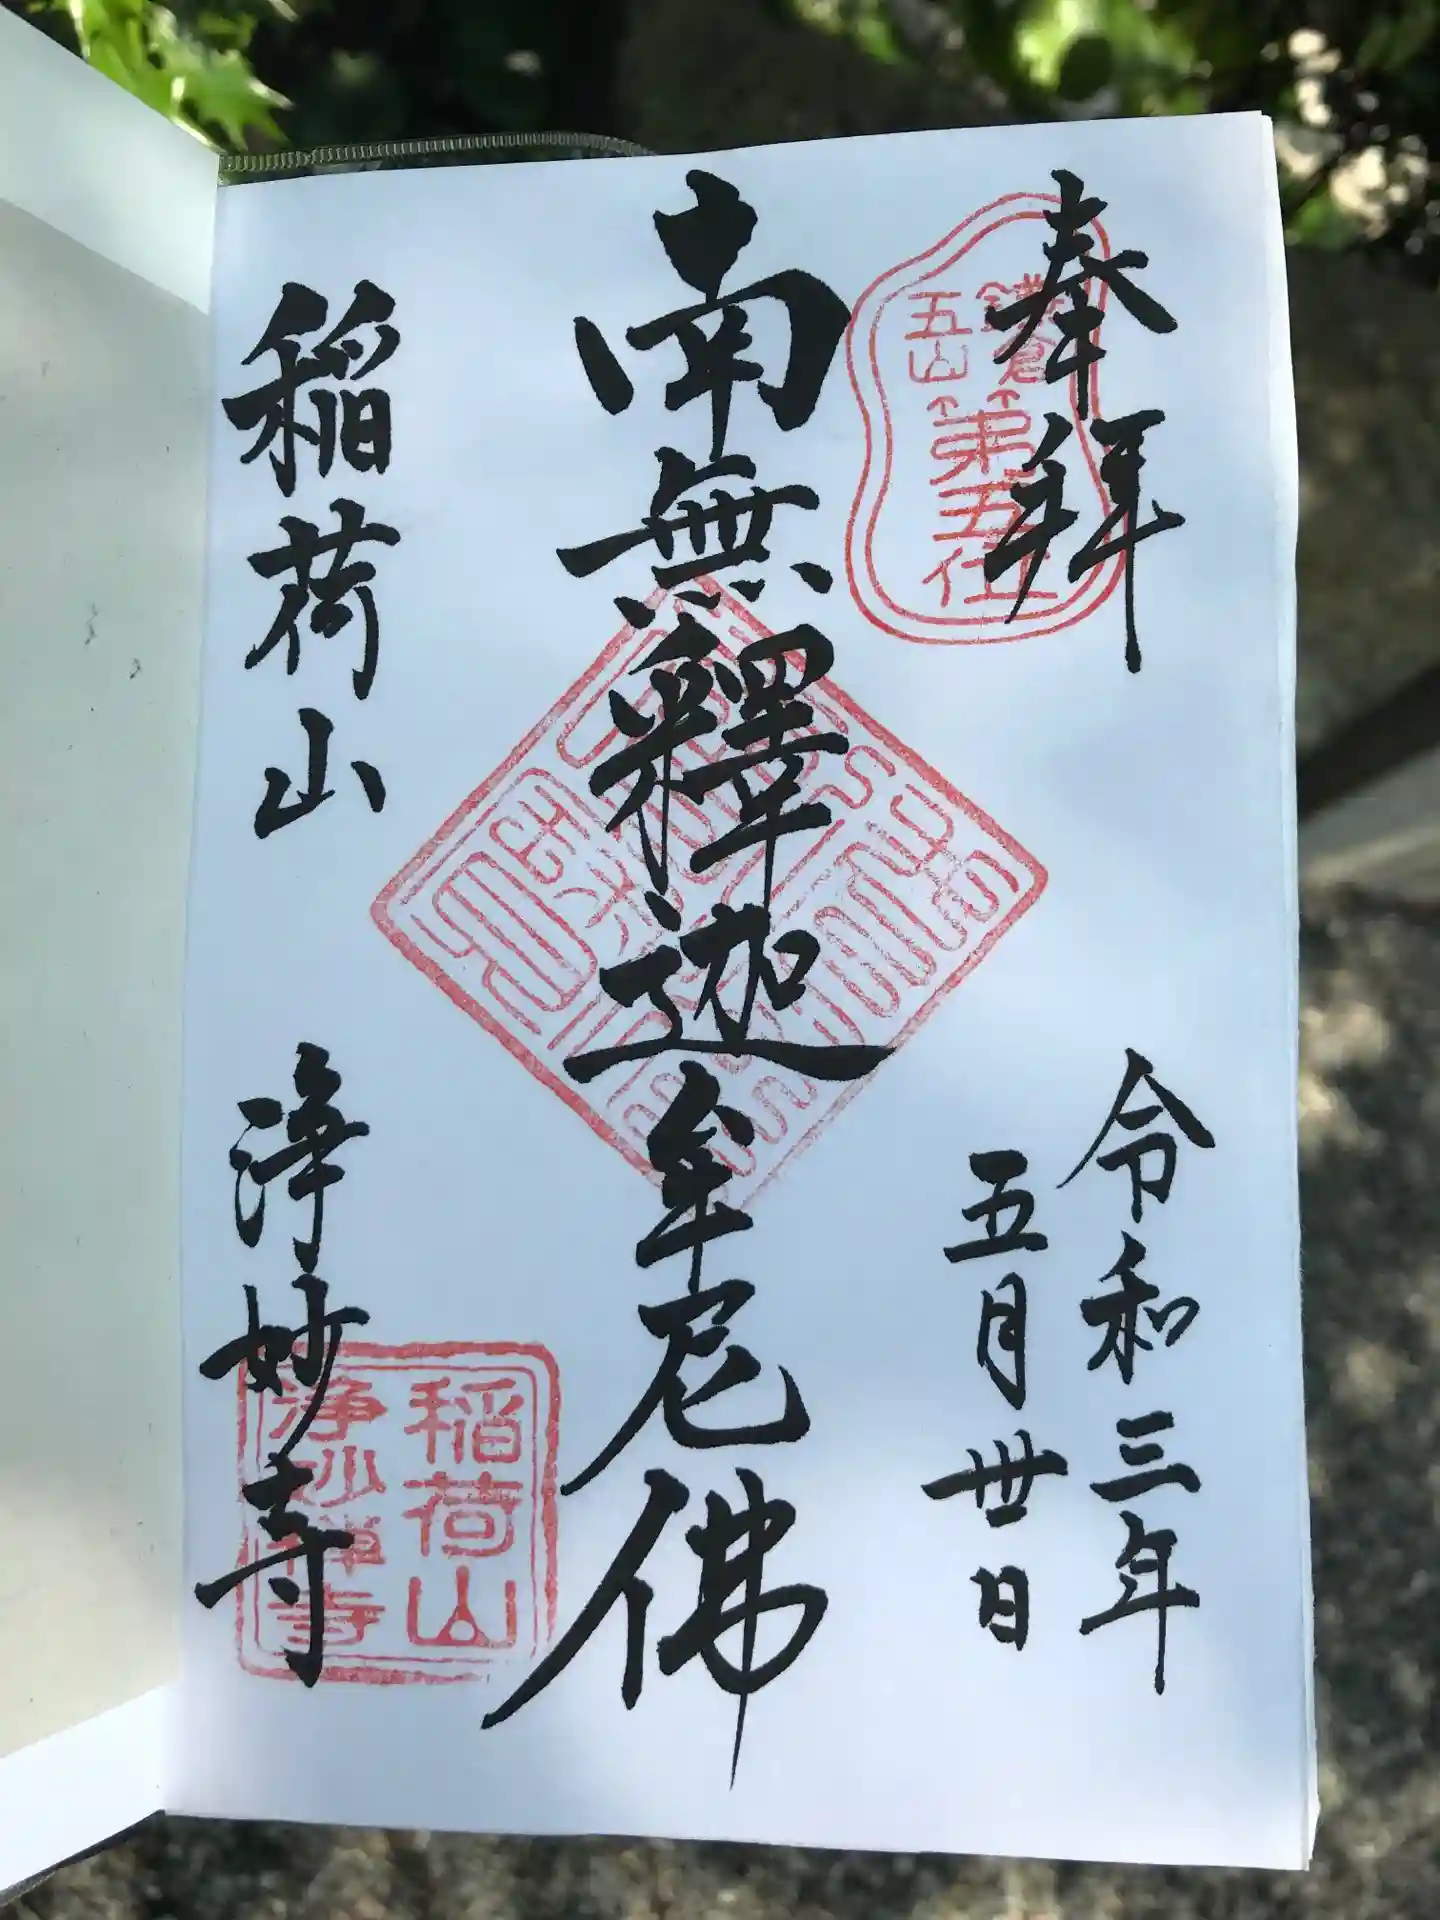 奉拝
鎌倉
五山
第五位
令和三年
五月卅日
南無釋迦牟尼佛
稲荷山 浄妙寺
稲荷山
浄妙禅寺